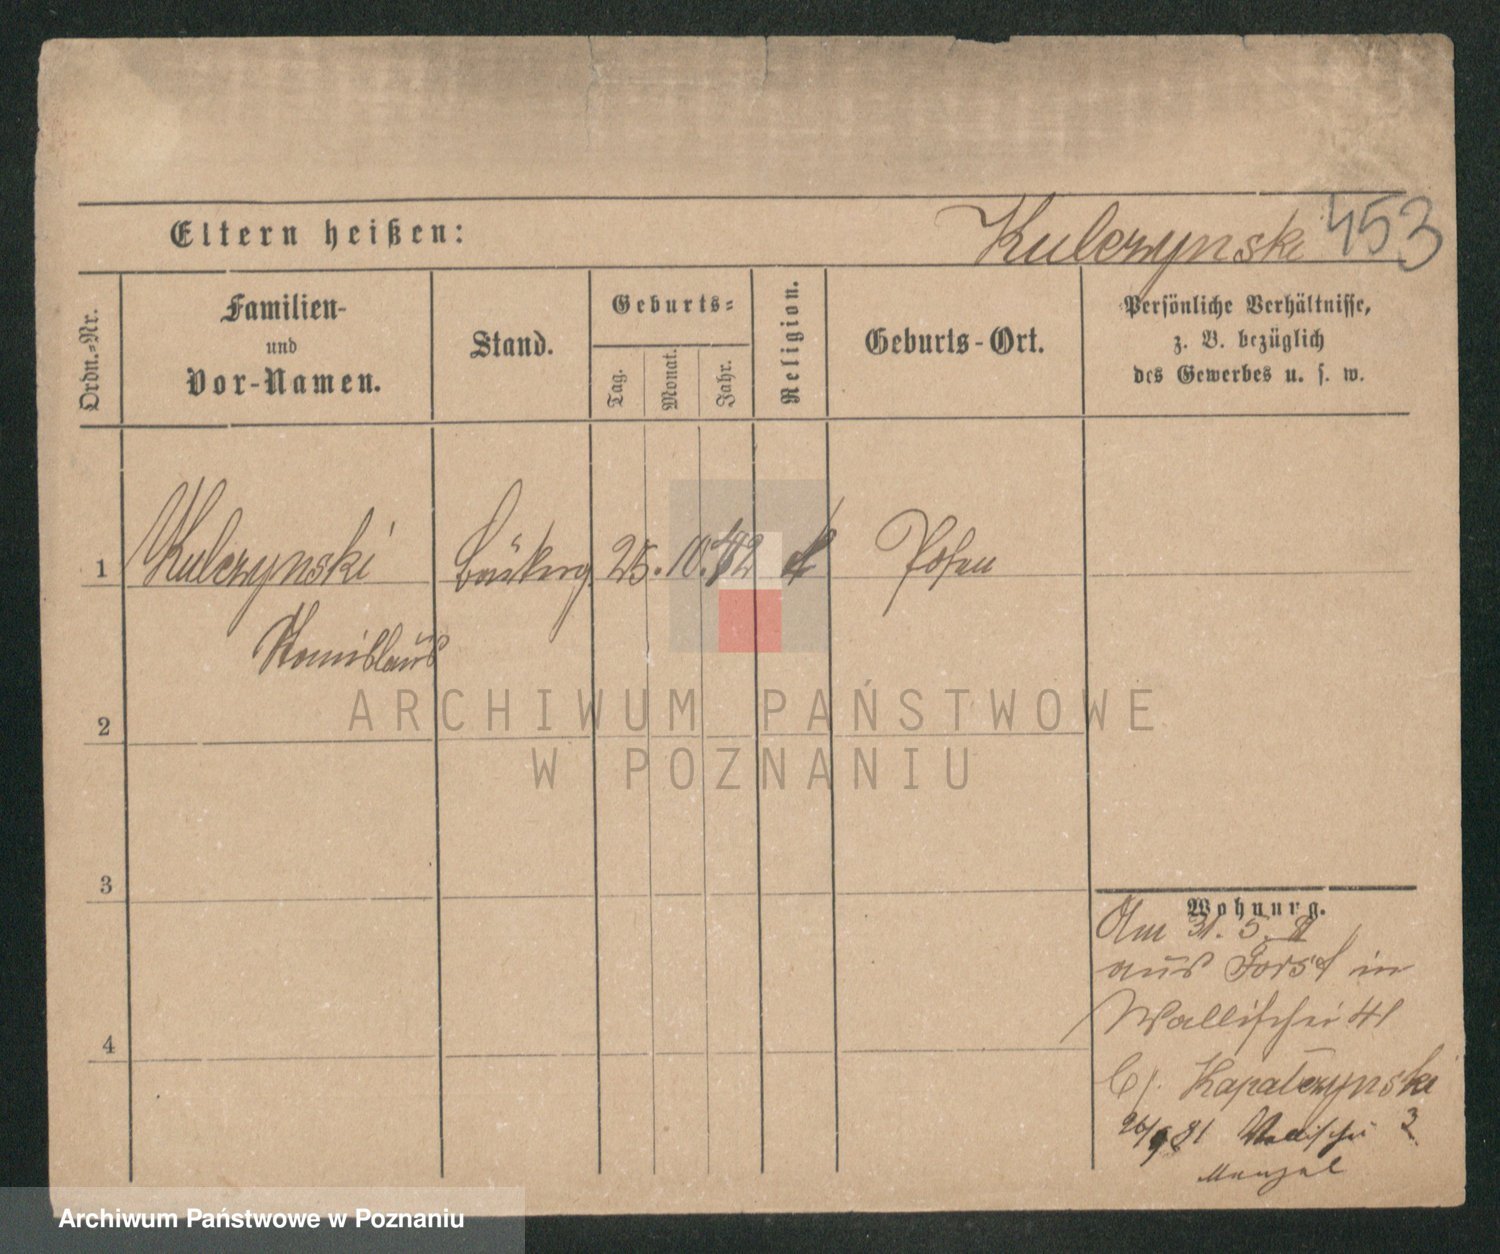 Eltern heißen:
Kulczynski 453
Ordn.-Nr.
Familien-
und
Vor-Namen.
Stand.
Geburts-
Tag.
Monat.
Jahr.
Religion.
Geburts-Ort.
Persönliche Verhältnisse,
z. B. bezüglich
des Gewerbes u. s. w.
1 Kulczynski 25. 10. k Posen
Stanislaus
2
3
4
Wohnung.
Am 31. 5. 81
aus Forst in
Wallischei 41
b/. Kapalczynski
26/9 81 Wallischei 3
Menzel
ARCHIWUM PAŃSTWOWE
W POZNANIU
Archiwum Państwowe w Poznaniu